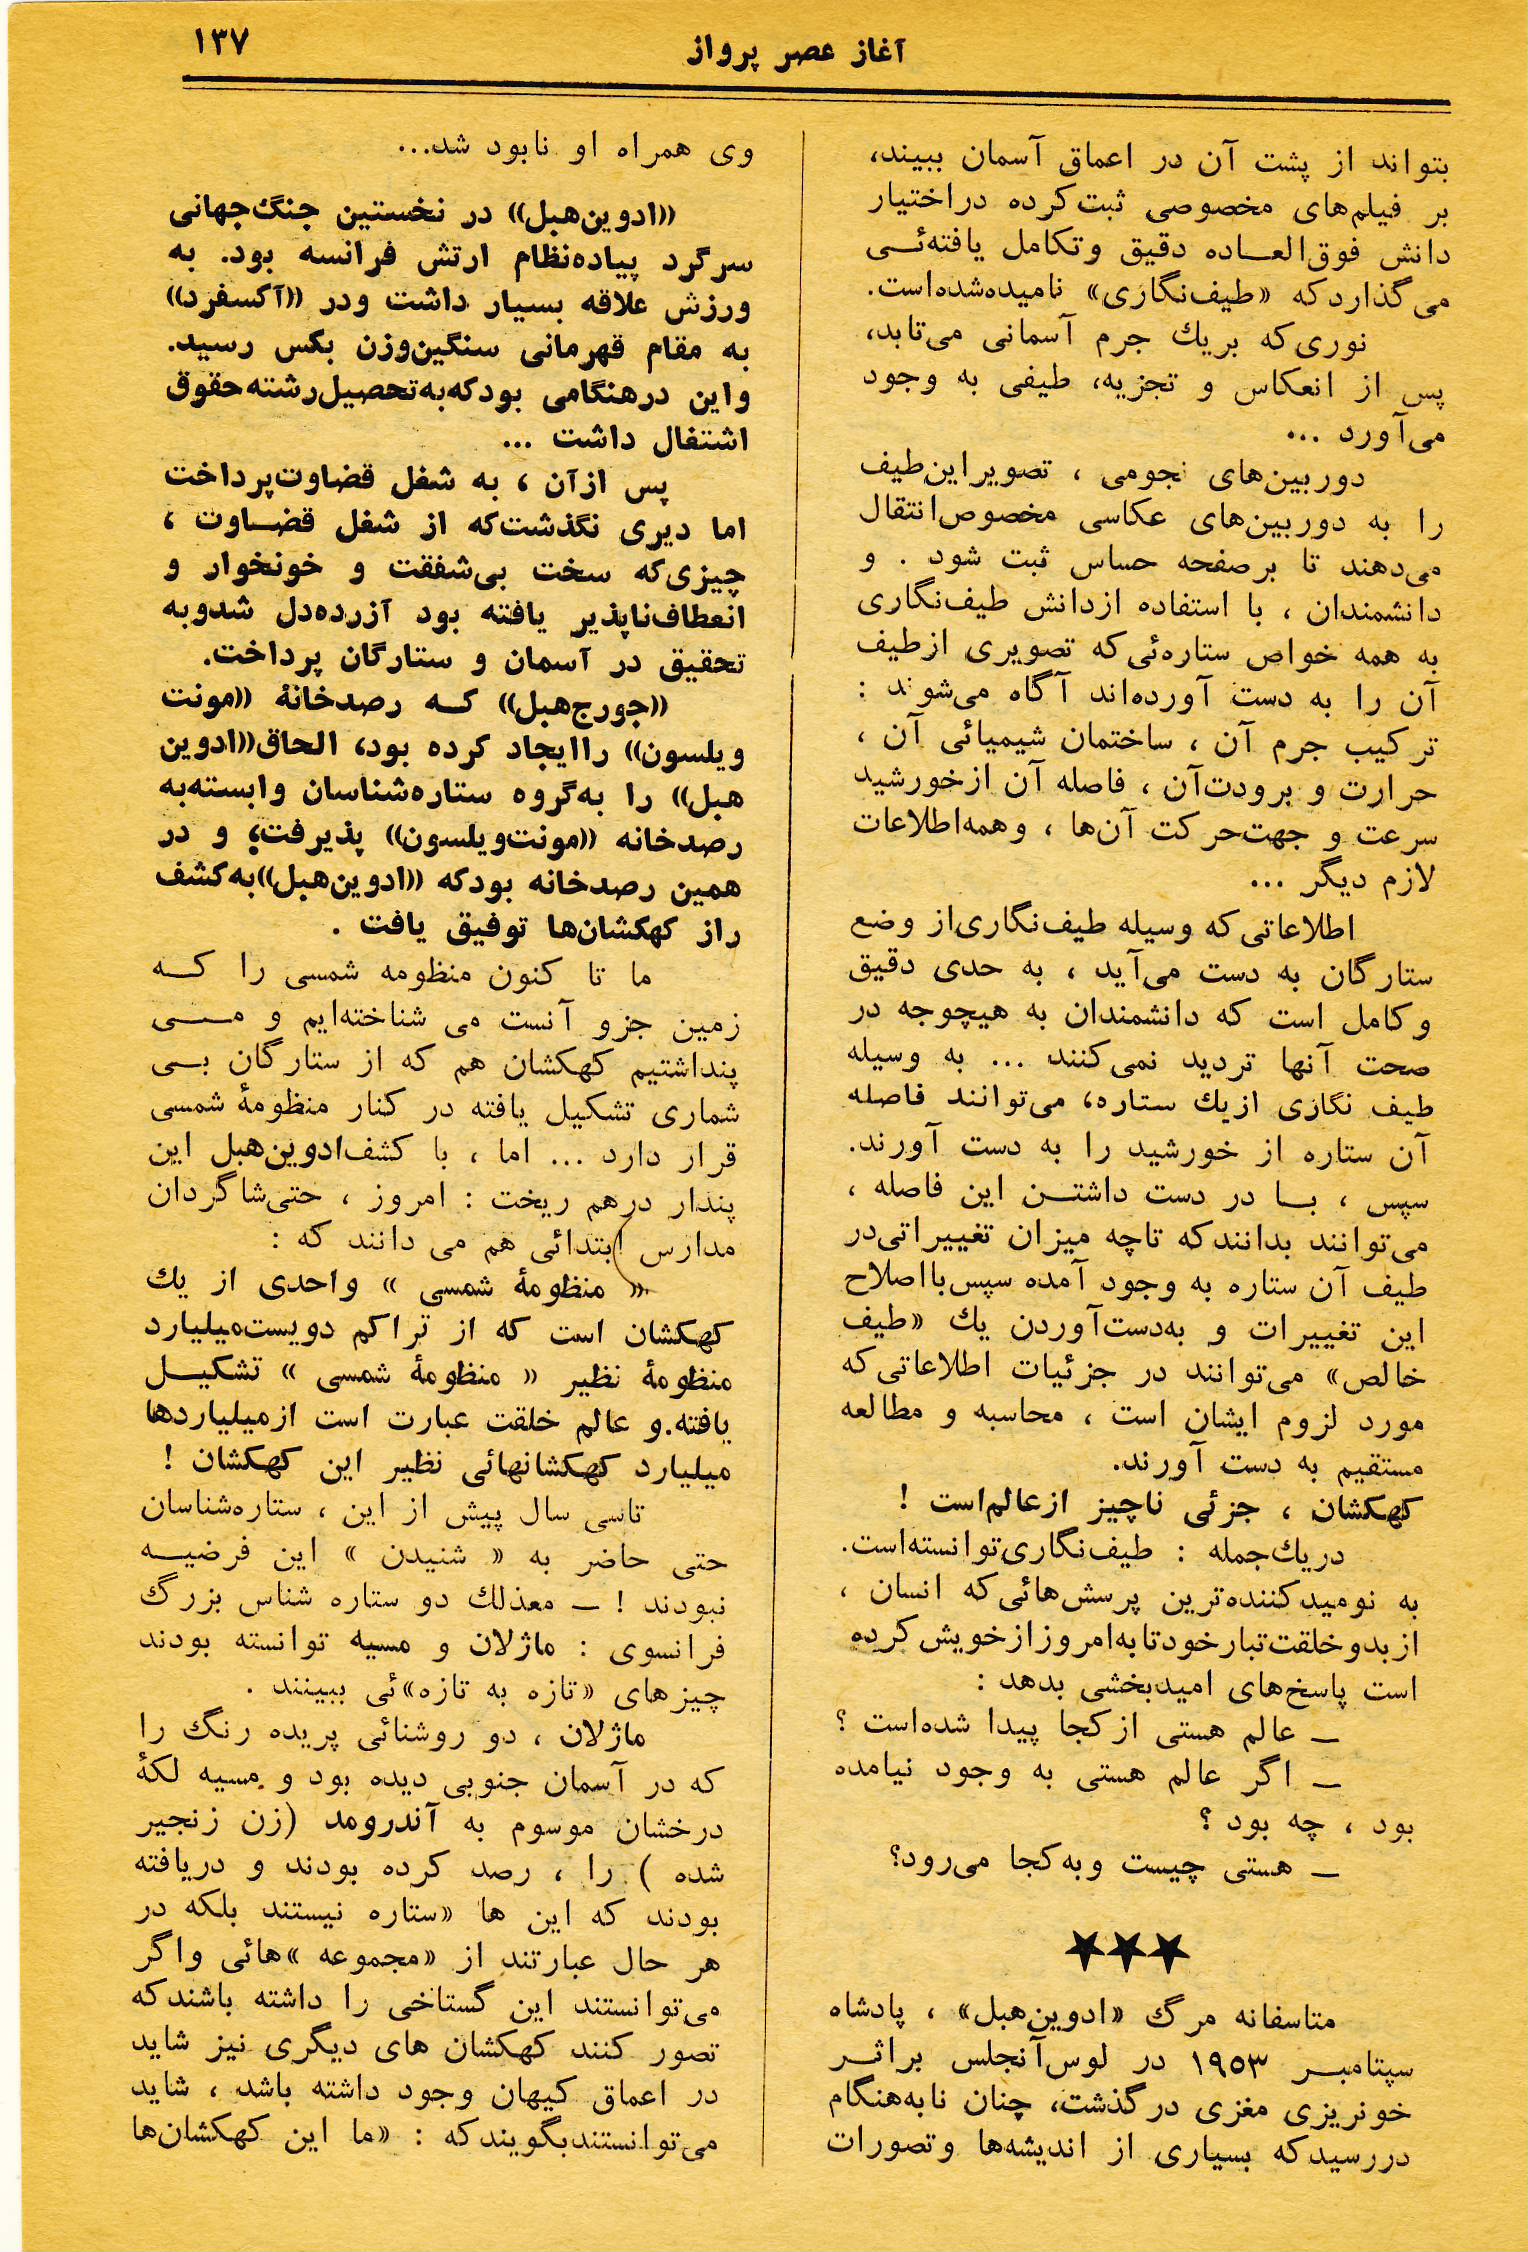 آغاز عصر پرواز
۱۳۷
بتواند از پشت آن در اعماق آسمان ببیند،
بر فیلم‌های مخصوصی ثبت‌کرده دراختیار
دانش فوق‌العـاده دقیق وتکامل یافته‌ئـی
می‌گذاردکه «طیف‌نگاری» نامیده‌شده‌است.
نوری‌که بریك جرم آسمانی می‌تابد،
پس از انعکاس و تجزیه، طیفی به وجود
می‌آورد ...
دوربین‌های نجومی ، تصویراین‌طیف
را به دوربین‌های عکاسی مخصوص‌انتقال
می‌دهند تا برصفحه حساس ثبت شود . و
دانشمندان ، با استفاده ازدانش طیف‌نگاری
به همه خواص ستاره‌ئی‌که تصویری ازطیف
آن را به دست آورده‌اند آگاه می‌شوند :
ترکیب جرم آن ، ساختمان شیمیائی آن ،
حرارت و برودت‌آن ، فاصله آن ازخورشید
سرعت و جهت‌حرکت آن‌ها ، وهمه‌اطلاعات
لازم دیگر ...
اطلاعاتی‌که وسیله طیف‌نگاری‌از وضع
ستارگان به دست می‌آید ، به حدی دقیق
وکامل است که دانشمندان به هیچوجه در
صحت آنها تردید نمی‌کنند ... به وسیله
طیف نگاری ازیك ستاره، می‌توانند فاصله
آن ستاره از خورشید را به دست آورند.
سپس ، بـا در دست داشتـن این فاصله ،
می‌توانند بدانندکه تاچه میزان تغییراتی‌در
طیف آن ستاره به وجود آمده سپس‌بااصلاح
این تغییرات و به‌دست‌آوردن یك «طیف
خالص» می‌توانند در جزئیات اطلاعاتی‌که
مورد لزوم ایشان است ، محاسبه و مطالعه
مستقیم به دست آورند.
کهکشان ، جزئی ناچیز ازعالم‌است !
دریك‌جمله : طیف‌نگاری‌توانسته‌است.
به نومیدکننده‌ترین پرسش‌هائی‌که انسان ،
ازبدوخلقت‌تبارخودتابه‌امروزازخویش‌کرده
است پاسخ‌های امیدبخشی بدهد :
ــ عالم هستی ازکجا پیدا شده‌است ؟
ــ اگر عالم هستی به وجود نیامده
بود ، چه بود ؟
ــ هستی چیست وبه‌کجا می‌رود؟
★★★
متاسفانه مرگ «ادوین‌هبل» ، پادشاه
سپتامبـر ۱۹۵۳ در لوس‌آنجلس براثـر
خونریزی مغزی درگذشت، چنان نابه‌هنگام
دررسیدکه بسیاری از اندیشه‌ها وتصورات
وی همراه او نابود شد...
«ادوین‌هبل» در نخستین جنگ‌جهانی
سرگرد پیاده‌نظام ارتش فرانسه بود. به
ورزش علاقه بسیار داشت ودر «آکسفرد»
به مقام قهرمانی سنگین‌وزن بکس رسید.
واین درهنگامی بودکه‌به‌تحصیل‌رشته‌حقوق
اشتغال داشت ...
پس ازآن ، به شغل قضاوت‌پرداخت
اما دیری نگذشت‌که از شغل قضـاوت ،
چیزی‌که سخت بی‌شفقت و خونخوار و
انعطاف‌ناپذیر یافته بود آزرده‌دل شدوبه
تحقیق در آسمان و ستارگان پرداخت.
«جورج‌هبل» کـه رصدخانهٔ «مونت
ویلسون» راایجاد کرده بود، الحاق«ادوین
هبل» را به‌گروه ستاره‌شناسان وابسته‌به
رصدخانه «مونت‌ویلسون» پذیرفت؛ و در
همین رصدخانه بودکه «ادوین‌هبل»به‌کشف
راز کهکشان‌ها توفیق یافت .
ما تا کنون منظومه شمسی را کـه
زمین جزو آنست می شناخته‌ایم و مـی
پنداشتیم کهکشان هم که از ستارگان بـی
شماری تشکیل یافته در کنار منظومهٔ شمسی
قرار دارد ... اما ، با کشف‌ادوین‌هبل این
پندار درهم ریخت : امروز ، حتی‌شاگردان
مدارس ابتدائی هم می دانند که :
« منظومهٔ شمسی » واحدی از یك
کهکشان است که از تراکم دویست‌میلیارد
منظومهٔ نظیر « منظومهٔ شمسی » تشکیـل
یافته.و عالم خلقت عبارت است ازمیلیاردها
میلیارد کهکشانهائی نظیر این کهکشان !
تاسی سال پیش از این ، ستاره‌شناسان
حتی حاضر به « شنیدن » این فرضیـه
نبودند ! ــ معذلك دو ستاره شناس بزرگ
فرانسوی : ماژلان و مسیه توانسته بودند
چیزهای «تازه به تازه»ئی ببینند .
ماژلان ، دو روشنائی پریده رنگ را
که در آسمان جنوبی دیده بود و مسیه لکهٔ
درخشان موسوم به آندرومد (زن زنجیر
شده ) را ، رصد کرده بودند و دریافته
بودند که این ها «ستاره نیستند بلکه در
هر حال عبارتند از «مجموعه »هائی واگر
می‌توانستند این گستاخی را داشته باشندکه
تصور کنند کهکشان های دیگری نیز شاید
در اعماق کیهان وجود داشته باشد ، شاید
می‌توانستندبگویندکه : «ما این کهکشان‌ها